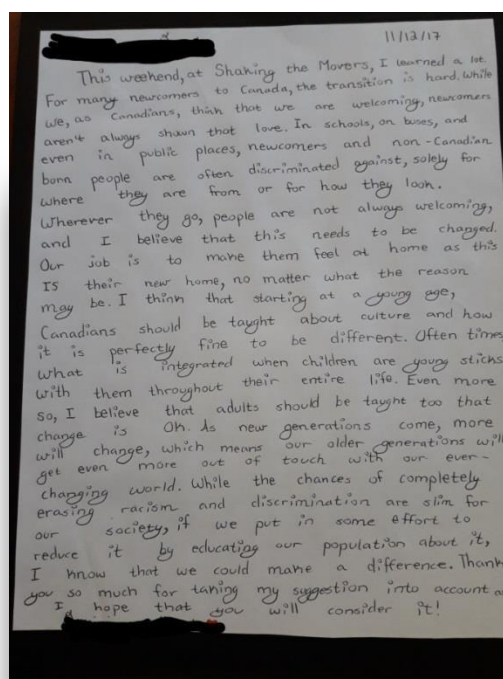 11/12/17
This weekend, at Shaking the Movers, I learned a lot.
For many newcomers to Canada, the transition is hard. While
we, as Canadians, think that we are welcoming, newcomers
aren't always shown that love. In schools, on buses, and
even in public places, newcomers and non-Canadian
born people are often discriminated against, solely for
where they are from or for how they look.
Wherever they go, people are not always welcoming,
and I believe that this needs to be changed.
Our job is to make them feel at home as this
IS their new home, no matter what the reason
may be. I think that starting at a young age,
Canadians should be taught about culture and how
it is perfectly fine to be different. Often times
what is integrated when children are young sticks
with them throughout their entire life. Even more
so, I believe that adults should be taught too that
change is Ok. As new generations come, more
will change, which means our older generations will
get even more out of touch with our ever-
changing world. While the chances of completely
erasing racism and discrimination are slim for
our society, if we put in some effort to
reduce it by educating our population about it,
I know that we could make a difference. Thank
you so much for taking my suggestion into account
I hope that you will consider it!